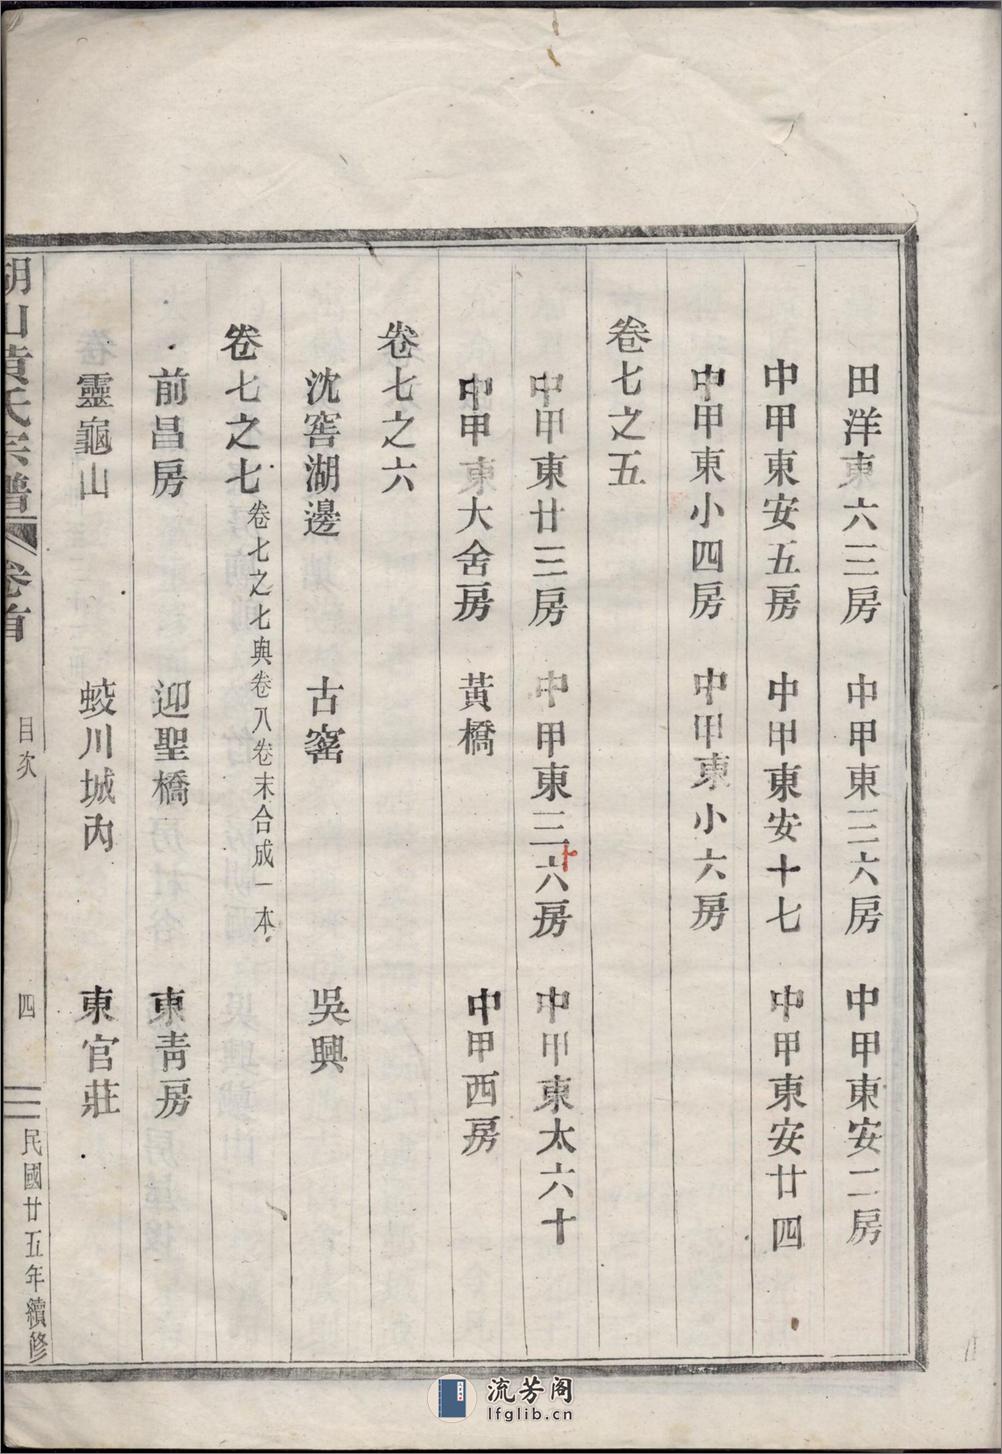 田洋東六三房　中甲東三六房　中甲東安二房
中甲東安五房　中甲東安十七　中甲東安廿四
中甲東小四房　中甲東小六房
卷七之五
中甲東廿三房　中甲東三十六房　中甲東太六十
中甲東大舍房　黃橋　中甲西房
卷七之六
沈窖湖邊　古窰　吳興
卷七之七　卷七之七與卷八卷末合成一本
前昌房　迎聖橋　東青房
靈龜山　蛟川城內　東官莊
湖山黃氏宗譜　卷首　目次　四　民國廿五年續修
流芳阁
lfglib.cn